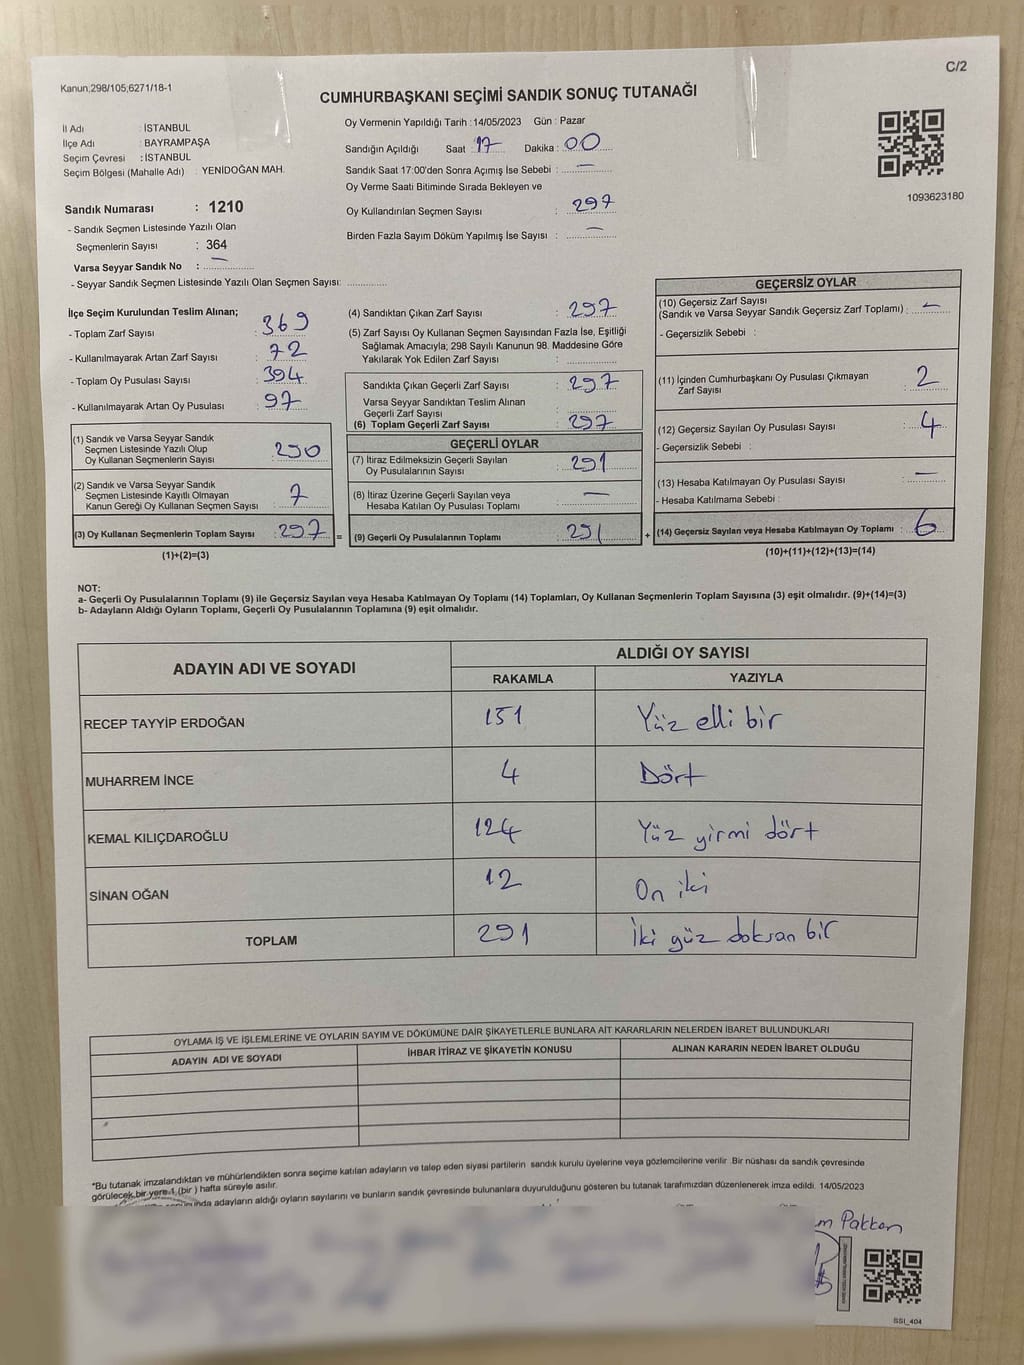 C/2
Kanun;298/105;6271/18-1
CUMHURBAŞKANI SEÇİMİ SANDIK SONUÇ TUTANAĞI
İl Adı : İSTANBUL
İlçe Adı : BAYRAMPAŞA
Seçim Çevresi : İSTANBUL
Seçim Bölgesi (Mahalle Adı) : YENİDOĞAN MAH.
Sandık Numarası : 1210
- Sandık Seçmen Listesinde Yazılı Olan
Seçmenlerin Sayısı : 364
Varsa Seyyar Sandık No : —
- Seyyar Sandık Seçmen Listesinde Yazılı Olan Seçmen Sayısı: ..............
Oy Vermenin Yapıldığı Tarih :14/05/2023 Gün : Pazar
Sandığın Açıldığı Saat : 17 Dakika : 00
Sandık Saat 17:00'den Sonra Açımış İse Sebebi : —
Oy Verme Saati Bitiminde Sırada Bekleyen ve
Oy Kullandırılan Seçmen Sayısı : 297
Birden Fazla Sayım Döküm Yapılmış İse Sayısı : —
1093623180
İlçe Seçim Kurulundan Teslim Alınan;
- Toplam Zarf Sayısı : 369
- Kullanılmayarak Artan Zarf Sayısı : 72
- Toplam Oy Pusulası Sayısı : 394
- Kullanılmayarak Artan Oy Pusulası : 97
(1) Sandık ve Varsa Seyyar Sandık
Seçmen Listesinde Yazılı Olup
Oy Kullanan Seçmenlerin Sayısı : 290
(2) Sandık ve Varsa Seyyar Sandık
Seçmen Listesinde Kayıtlı Olmayan
Kanun Gereği Oy Kullanan Seçmen Sayısı : 7
(3) Oy Kullanan Seçmenlerin Toplam Sayısı : 297 =
(1)+(2)=(3)
(4) Sandıktan Çıkan Zarf Sayısı : 297
(5) Zarf Sayısı Oy Kullanan Seçmen Sayısından Fazla İse, Eşitliği
Sağlamak Amacıyla; 298 Sayılı Kanunun 98. Maddesine Göre
Yakılarak Yok Edilen Zarf Sayısı : ..............
Sandıkta Çıkan Geçerli Zarf Sayısı : 297
Varsa Seyyar Sandıktan Teslim Alınan
Geçerli Zarf Sayısı : ..............
(6) Toplam Geçerli Zarf Sayısı : 297
GEÇERLİ OYLAR
(7) İtiraz Edilmeksizin Geçerli Sayılan
Oy Pusulalarının Sayısı : 291
(8) İtiraz Üzerine Geçerli Sayılan veya
Hesaba Katılan Oy Pusulası Toplamı : —
(9) Geçerli Oy Pusulalarının Toplamı : 291 +
GEÇERSİZ OYLAR
(10) Geçersiz Zarf Sayısı
(Sandık ve Varsa Seyyar Sandık Geçersiz Zarf Toplamı) : —
- Geçersizlik Sebebi :
(11) İçinden Cumhurbaşkanı Oy Pusulası Çıkmayan
Zarf Sayısı : 2
(12) Geçersiz Sayılan Oy Pusulası Sayısı : 4
- Geçersizlik Sebebi :
(13) Hesaba Katılmayan Oy Pusulası Sayısı : —
- Hesaba Katılmama Sebebi :
(14) Geçersiz Sayılan veya Hesaba Katılmayan Oy Toplamı : 6
(10)+(11)+(12)+(13)=(14)
NOT:
a- Geçerli Oy Pusulalarının Toplamı (9) ile Geçersiz Sayılan veya Hesaba Katılmayan Oy Toplamı (14) Toplamları, Oy Kullanan Seçmenlerin Toplam Sayısına (3) eşit olmalıdır. (9)+(14)=(3)
b- Adayların Aldığı Oyların Toplamı, Geçerli Oy Pusulalarının Toplamına (9) eşit olmalıdır.
ADAYIN ADI VE SOYADI ALDIĞI OY SAYISI
RAKAMLA YAZIYLA
RECEP TAYYİP ERDOĞAN 151 Yüz elli bir
MUHARREM İNCE 4 Dört
KEMAL KILIÇDAROĞLU 124 Yüz yirmi dört
SİNAN OĞAN 12 On iki
TOPLAM 291 İki yüz doksan bir
OYLAMA İŞ VE İŞLEMLERİNE VE OYLARIN SAYIM VE DÖKÜMÜNE DAİR ŞİKAYETLERLE BUNLARA AİT KARARLARIN NELERDEN İBARET BULUNDUKLARI
ADAYIN ADI VE SOYADI İHBAR İTİRAZ VE ŞİKAYETİN KONUSU ALINAN KARARIN NEDEN İBARET OLDUĞU
*Bu tutanak imzalandıktan ve mühürlendikten sonra seçime katılan adayların ve talep eden siyasi partilerin sandık kurulu üyelerine veya gözlemcilerine verilir .Bir nüshası da sandık çevresinde
görülecek bir yere 1 (bir ) hafta süreyle asılır.
adayların aldığı oyların sayılarını ve bunların sandık çevresinde bulunanlara duyurulduğunu gösteren bu tutanak tarafımızdan düzenlenerek imza edildi. 14/05/2023
Pakkan
SSI_404